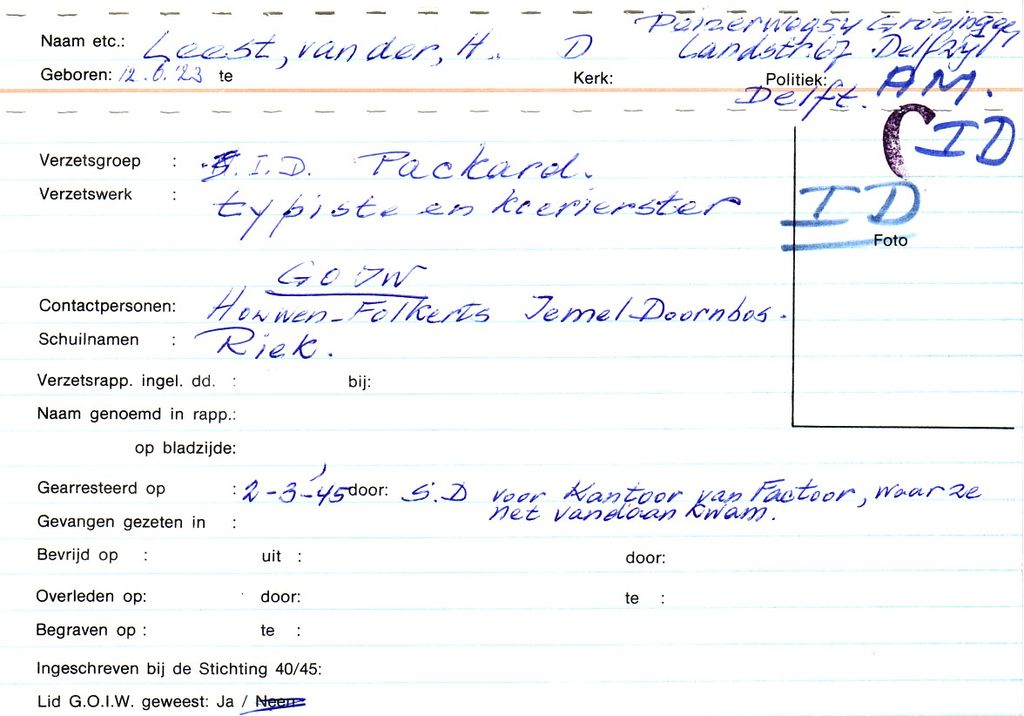 Peizerwegsy Groningen
Naam etc.: Leest, van der, H. D Landstr. bij Delfzyl
Geboren: 12.6.'23 te Kerk: Politiek: AM.
Delft.
ID
Verzetsgroep : I.D. Packard.
Verzetswerk : typiste en koerierster
ID
Foto
GOIW
Contactpersonen: Houwen-Folkerts Jemel-Doornbos.
Schuilnamen : Riek.
Verzetsrapp. ingel. dd. : bij:
Naam genoemd in rapp.:
op bladzijde:
Gearresteerd op : 2-3-'45 door: S.D voor Kantoor van Factoor, waar ze
net vandaan kwam.
Gevangen gezeten in :
Bevrijd op : uit : door:
Overleden op: door: te :
Begraven op : te :
Ingeschreven bij de Stichting 40/45:
Lid G.O.I.W. geweest: Ja / Neen